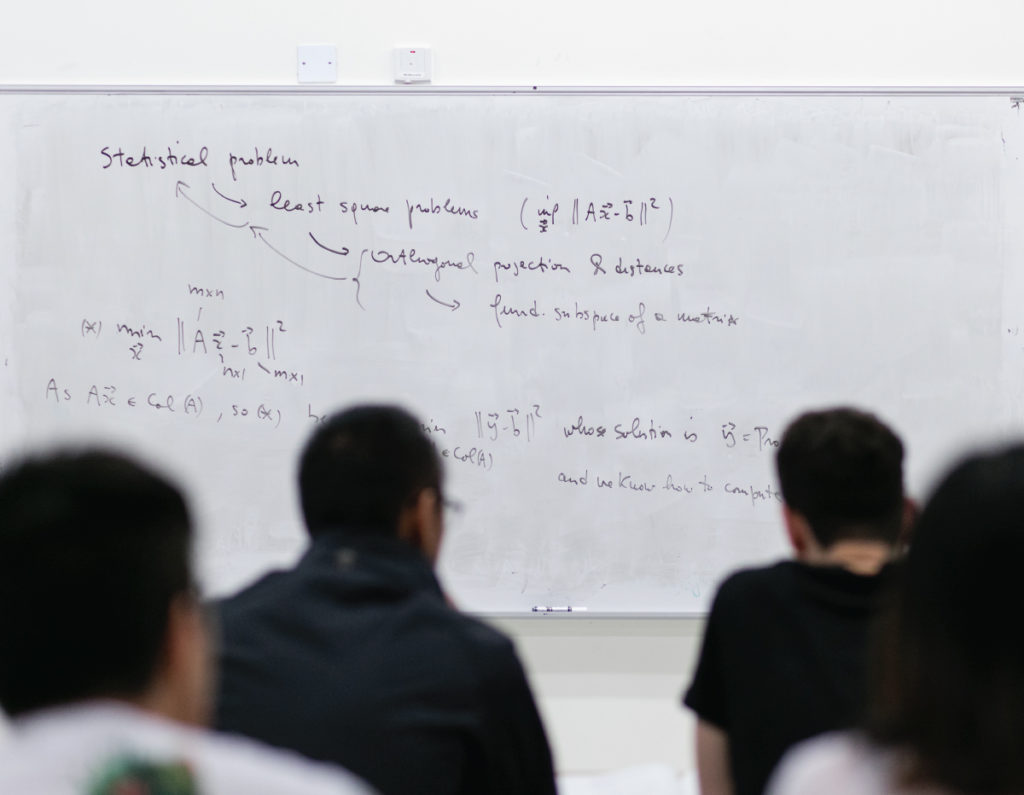 Statistical problem
least square problems ( inf ‖A x⃗ - b⃗‖² )
x⃗
Orthogonal projection & distances
fund. subspace of a matrix
m×n
(*) min ‖A x⃗ - b⃗‖²
x⃗
n×1 m×1
As A x⃗ ∈ Col(A), so (*) ‖y⃗ - b⃗‖² whose solution is y⃗ =
∈ Col(A)
and we know how to compute